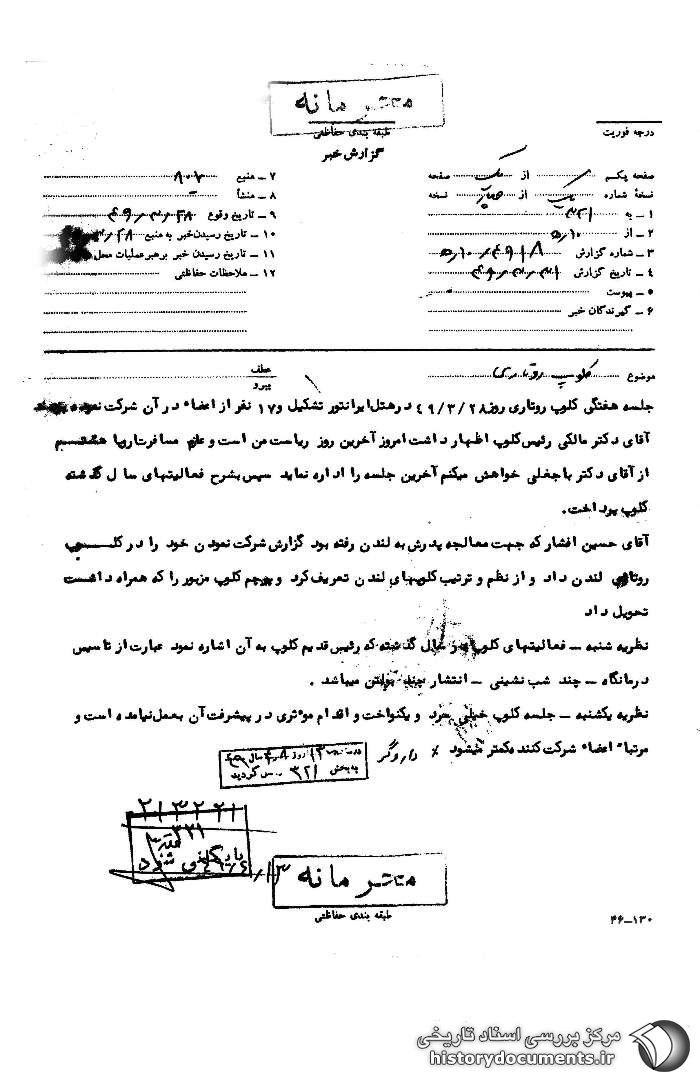 محترمانه
طبقه بندی حفاظتی
درجه فوریت
گزارش خبر
صفحه یکم از یک صفحه
نسخهٔ شماره یک از چهار نسخه
۱ ـ به ۳۲۱
۲ ـ از ۱۰ﻫ
۳ ـ شماره گزارش
۴ ـ تاریخ گزارش ۴۹/۳/۳۱
۵ ـ پیوست
۶ ـ گیرندگان خبر
۷ ـ منبع
۸ ـ منشأ
۹ ـ تاریخ وقوع ۴۹/۳/۲۸
۱۰ ـ تاریخ رسیدن خبر به منبع ۳/۲۸
۱۱ ـ تاریخ رسیدن خبر برهبر عملیات محل
۱۲ ـ ملاحظات حفاظتی
موضوع کلوپ روتاری
عطف
پیرو
جلسه هفتگی کلوپ روتاری روز ۴۹/۳/۲۸ درهتل ایرانتور تشکیل و ۱۷ نفر از اعضاء در آن شرکت نموده بودند
آقای دکتر مالکی رئیس کلوپ اظهار داشت امروز آخرین روز ریاست من است و عازم مسافرت اروپا هستم
از آقای دکتر باجغلی خواهش میکنم آخرین جلسه را اداره نماید سپس بشرح فعالیتهای سال گذشته
کلوپ پرداخت.
آقای حسین افشار که جهت معالجه پدرش به لندن رفته بود گزارش شرکت نمودن خود را در کلوپ
روتاری لندن داد و از نظم و ترتیب کلوپهای لندن تعریف کرد و پرچم کلوپ مزبور را که همراه داشت
تحویل داد
نظریه شنبه ـ فعالیتهای کلوپ در سال گذشته که رئیس قدیم کلوپ به آن اشاره نمود عبارت از تاسیس
درمانگاه ـ چند شب نشینی ـ انتشار چند بولتن میباشد .
نظریه یکشنبه ـ جلسه کلوپ خیلی سرد و یکنواخت و اقدام موثری در پیشرفت آن بعمل نیامده است و
مرتبا اعضاء شرکت کننده کمتر میشود ٪ داروگر
به بخش ۳۲۱ رس گردید
۳۲۱
بایگانی شود
محترمانه
طبقه بندی حفاظتی
۴۶-۱۳۰
مرکز بررسی اسناد تاریخی
historydocuments.ir